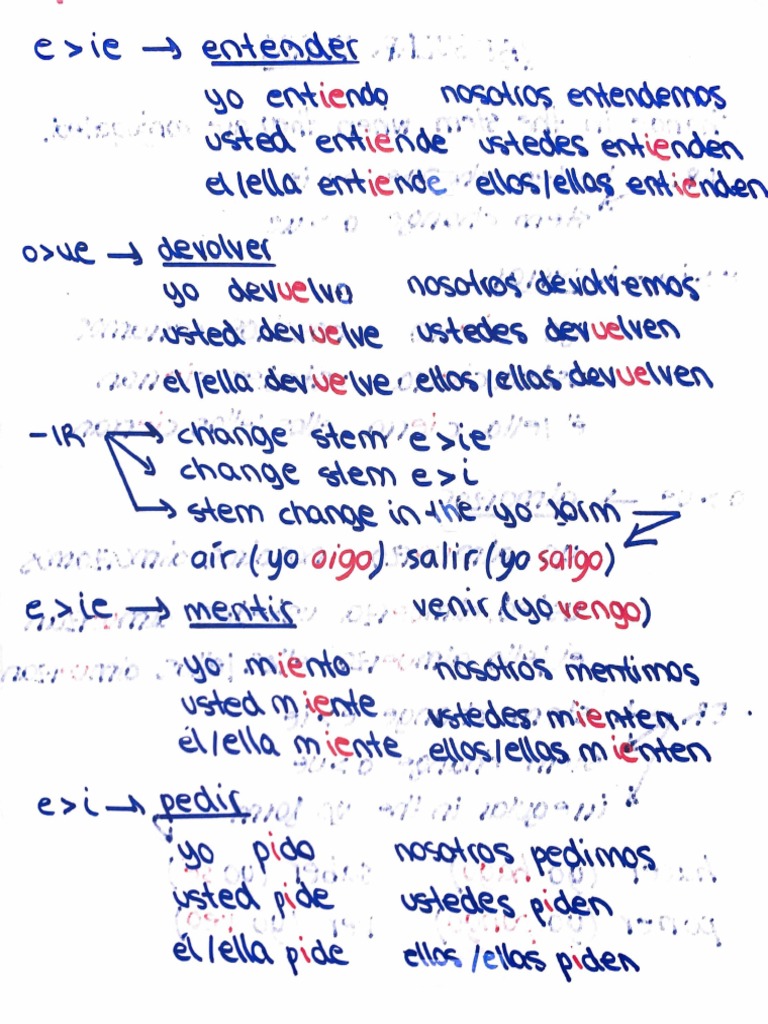 e > ie → entender
yo entiendo nosotros entendemos
usted entiende ustedes entienden
el/ella entiende ellos/ellas entienden
o>ue → devolver
yo devuelvo nosotros devolvemos
usted devuelve ustedes devuelven
el/ella devuelve ellos/ellas devuelven
-IR → change stem e>ie
→ change stem e>i
→ stem change in the yo form →
air (yo oigo) salir (yo salgo)
venir (yo vengo)
e > ie → mentir
yo miento nosotros mentimos
usted miente ustedes mienten
él/ella miente ellos/ellas mienten
e > i → pedir
yo pido nosotros pedimos
usted pide ustedes piden
él/ella pide ellos/ellas piden